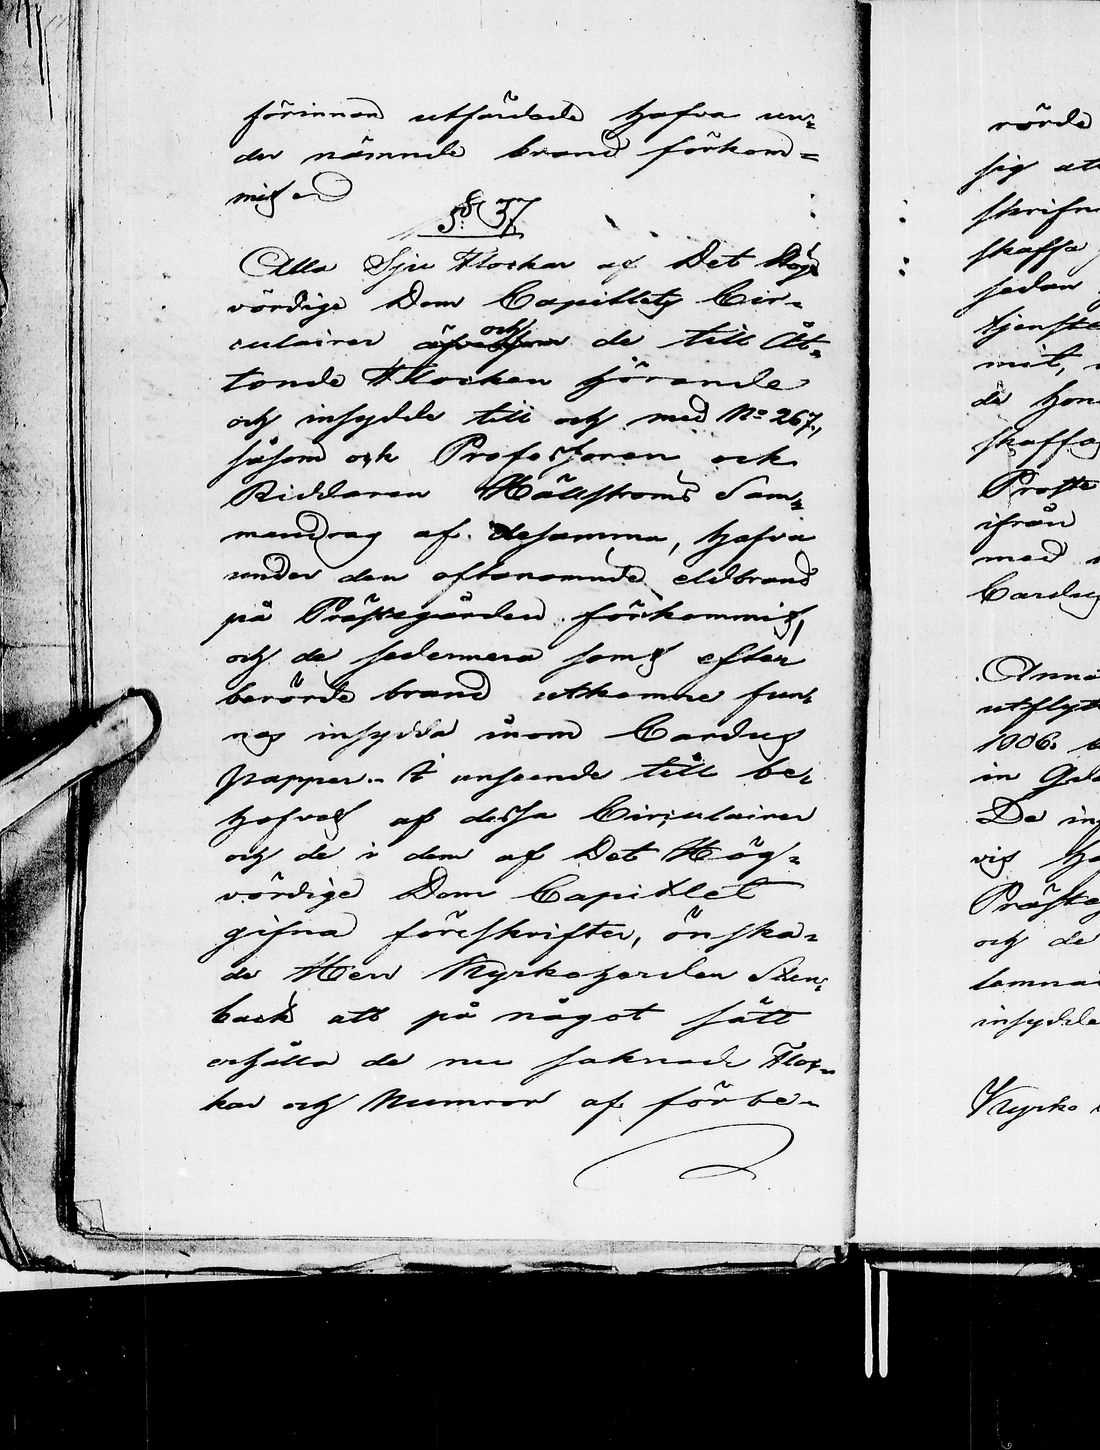 förinnan utfärdade hafva un-
der nämnde brand förkom-
mit
§ 37
Alla Sju Flockar af Det Hög
vördige Dom Capitlets Cir-
culairer och de till Åt-
tonde Flocken hörande
och insydde till och med No 267,
såsom ock Professoren och
Riddaren Hällströms Sam-
mandrag af desamma, hafva
under den oftanämnde eldbrand
på Prästegården förkommit,
och de sedermera samt efter
berörde brand utkomne fun-
nos insydda inom Cardus
papper. I anseende till be-
hofvet af dessa Circulairer
och de i dem af Det Hög-
vördige Dom Capitlet
gifna föreskrifter, önska-
de Herr Kyrkoherden Sten-
back att på något sätt
erhålla de nu saknade Floc-
kar och Numror af förbe-
rörde
sig att
skrifne
skaffa
sedan
tjenste
mit,
de hono
skaffa
Proste
ifrån
med
Cardus
Anno
utflyt
1806.
in
De in
vis
Präste
och de
lemna
insydde
Kyrko